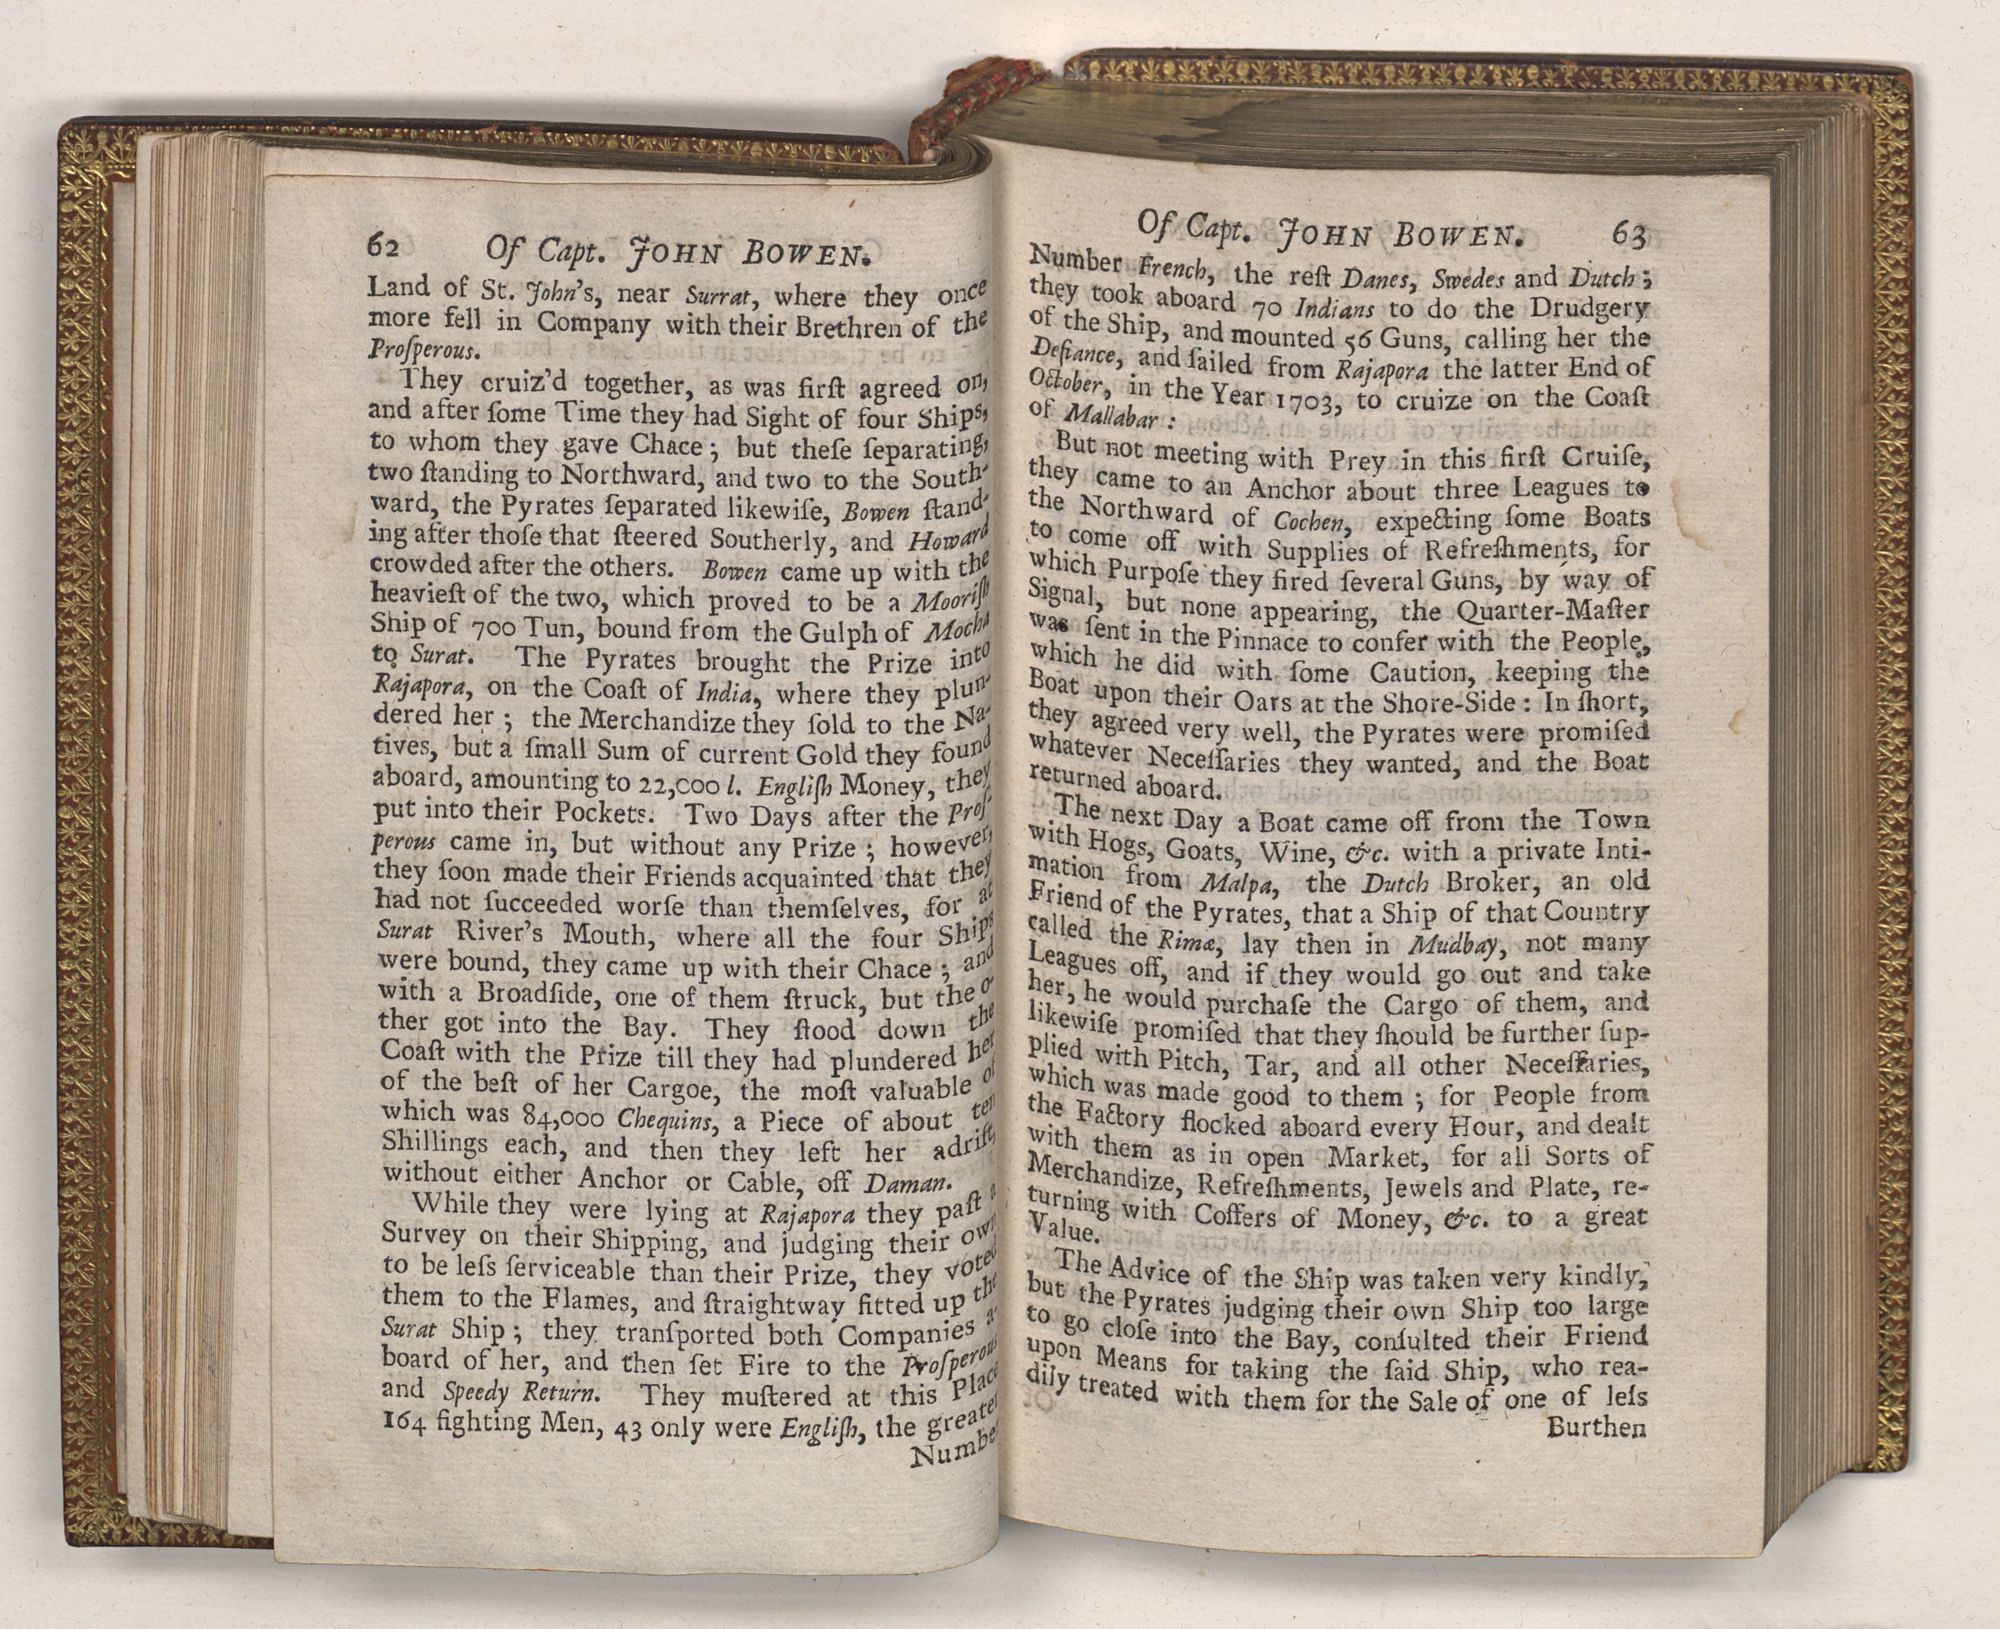 62 Of Capt. JOHN BOWEN.
Land of St. John's, near Surrat, where they once
more fell in Company with their Brethren of the
Proſperous.
They cruiz'd together, as was firſt agreed on,
and after ſome Time they had Sight of four Ships,
to whom they gave Chace; but theſe ſeparating,
two ſtanding to Northward, and two to the South-
ward, the Pyrates ſeparated likewiſe, Bowen ſtand-
ing after thoſe that ſteered Southerly, and Howard
crowded after the others. Bowen came up with the
heavieſt of the two, which proved to be a Mooriſh
Ship of 700 Tun, bound from the Gulph of Mocha
to Surat. The Pyrates brought the Prize into
Rajapora, on the Coaſt of India, where they plun-
dered her; the Merchandize they ſold to the Na-
tives, but a ſmall Sum of current Gold they found
aboard, amounting to 22,000 l. Engliſh Money, they
put into their Pockets. Two Days after the Proſ-
perous came in, but without any Prize; however,
they ſoon made their Friends acquainted that they
had not ſucceeded worſe than themſelves, for at
Surat River's Mouth, where all the four Ships
were bound, they came up with their Chace; and
with a Broadſide, one of them ſtruck, but the o-
ther got into the Bay. They ſtood down the
Coaſt with the Prize till they had plundered her
of the beſt of her Cargoe, the moſt valuable of
which was 84,000 Chequins, a Piece of about ten
Shillings each, and then they left her adrift,
without either Anchor or Cable, off Daman.
While they were lying at Rajapora they paſt a
Survey on their Shipping, and judging their own
to be leſs ſerviceable than their Prize, they voted
them to the Flames, and ſtraightway fitted up the
Surat Ship; they tranſported both Companies a-
board of her, and then ſet Fire to the Proſperous
and Speedy Return. They muſtered at this Place
164 fighting Men, 43 only were Engliſh, the greater
Number
Of Capt. JOHN BOWEN. 63
Number French, the reſt Danes, Swedes and Dutch;
they took aboard 70 Indians to do the Drudgery
of the Ship, and mounted 56 Guns, calling her the
Defiance, and ſailed from Rajapora the latter End of
October, in the Year 1703, to cruize on the Coaſt
of Mallabar:
But not meeting with Prey in this firſt Cruiſe,
they came to an Anchor about three Leagues to
the Northward of Cochen, expecting ſome Boats
to come off with Supplies of Refreſhments, for
which Purpoſe they fired ſeveral Guns, by way of
Signal, but none appearing, the Quarter-Maſter
was ſent in the Pinnace to confer with the People,
which he did with ſome Caution, keeping the
Boat upon their Oars at the Shore-Side: In ſhort,
they agreed very well, the Pyrates were promiſed
whatever Neceſſaries they wanted, and the Boat
returned aboard.
The next Day a Boat came off from the Town
with Hogs, Goats, Wine, &c. with a private Inti-
mation from Malpa, the Dutch Broker, an old
Friend of the Pyrates, that a Ship of that Country
called the Rimæ, lay then in Mudbay, not many
Leagues off, and if they would go out and take
her, he would purchaſe the Cargo of them, and
likewiſe promiſed that they ſhould be further ſup-
plied with Pitch, Tar, and all other Neceſſaries,
which was made good to them; for People from
the Factory flocked aboard every Hour, and dealt
with them as in open Market, for all Sorts of
Merchandize, Refreſhments, Jewels and Plate, re-
turning with Coffers of Money, &c. to a great
Value.
The Advice of the Ship was taken very kindly,
but the Pyrates judging their own Ship too large
to go cloſe into the Bay, conſulted their Friend
upon Means for taking the ſaid Ship, who rea-
dily treated with them for the Sale of one of leſs
Burthen